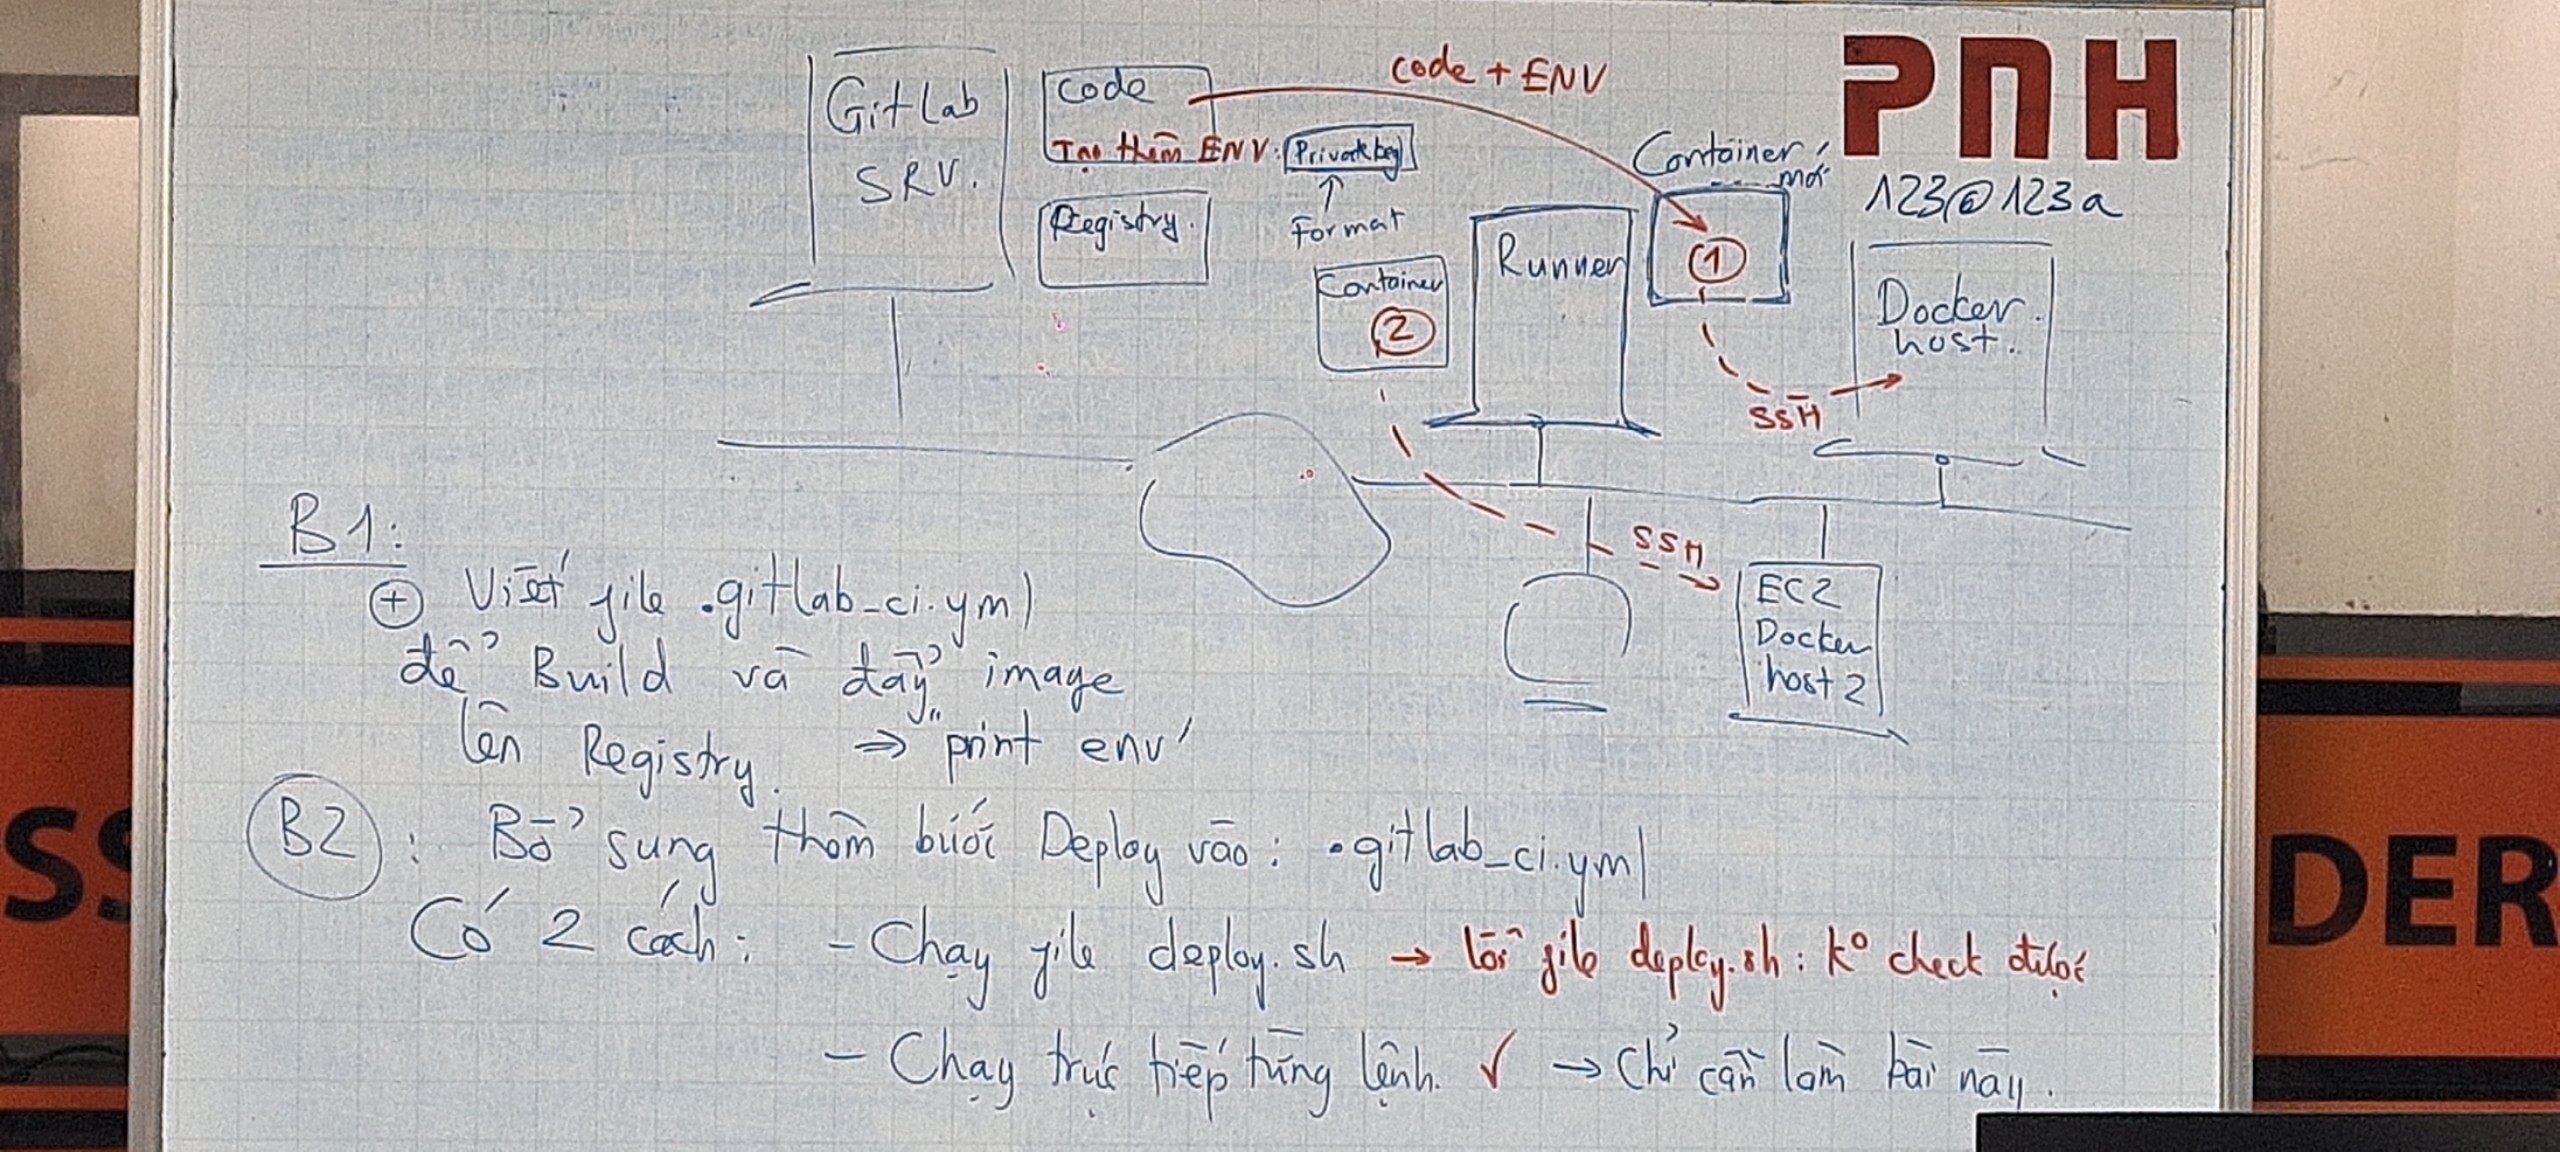 GitLab
SRV.
code
Tạo thêm ENV: Private key
Format
Registry.
code + ENV
PNH
123@123a
Container mới
1
Runner
Container
2
Docker host.
SSH
SSH
EC2
Docker
host 2
B1:
+ Viết file .gitlab_ci.yml
để Build và đẩy image
lên Registry. => "print env"
B2: Bổ sung thêm bước Deploy vào: .gitlab_ci.yml
Có 2 cách: - Chạy file deploy.sh → lỗi file deploy.sh: k° check được
- Chạy trực tiếp từng lệnh. ✓ → Chỉ cần làm bài này.
SS
DER